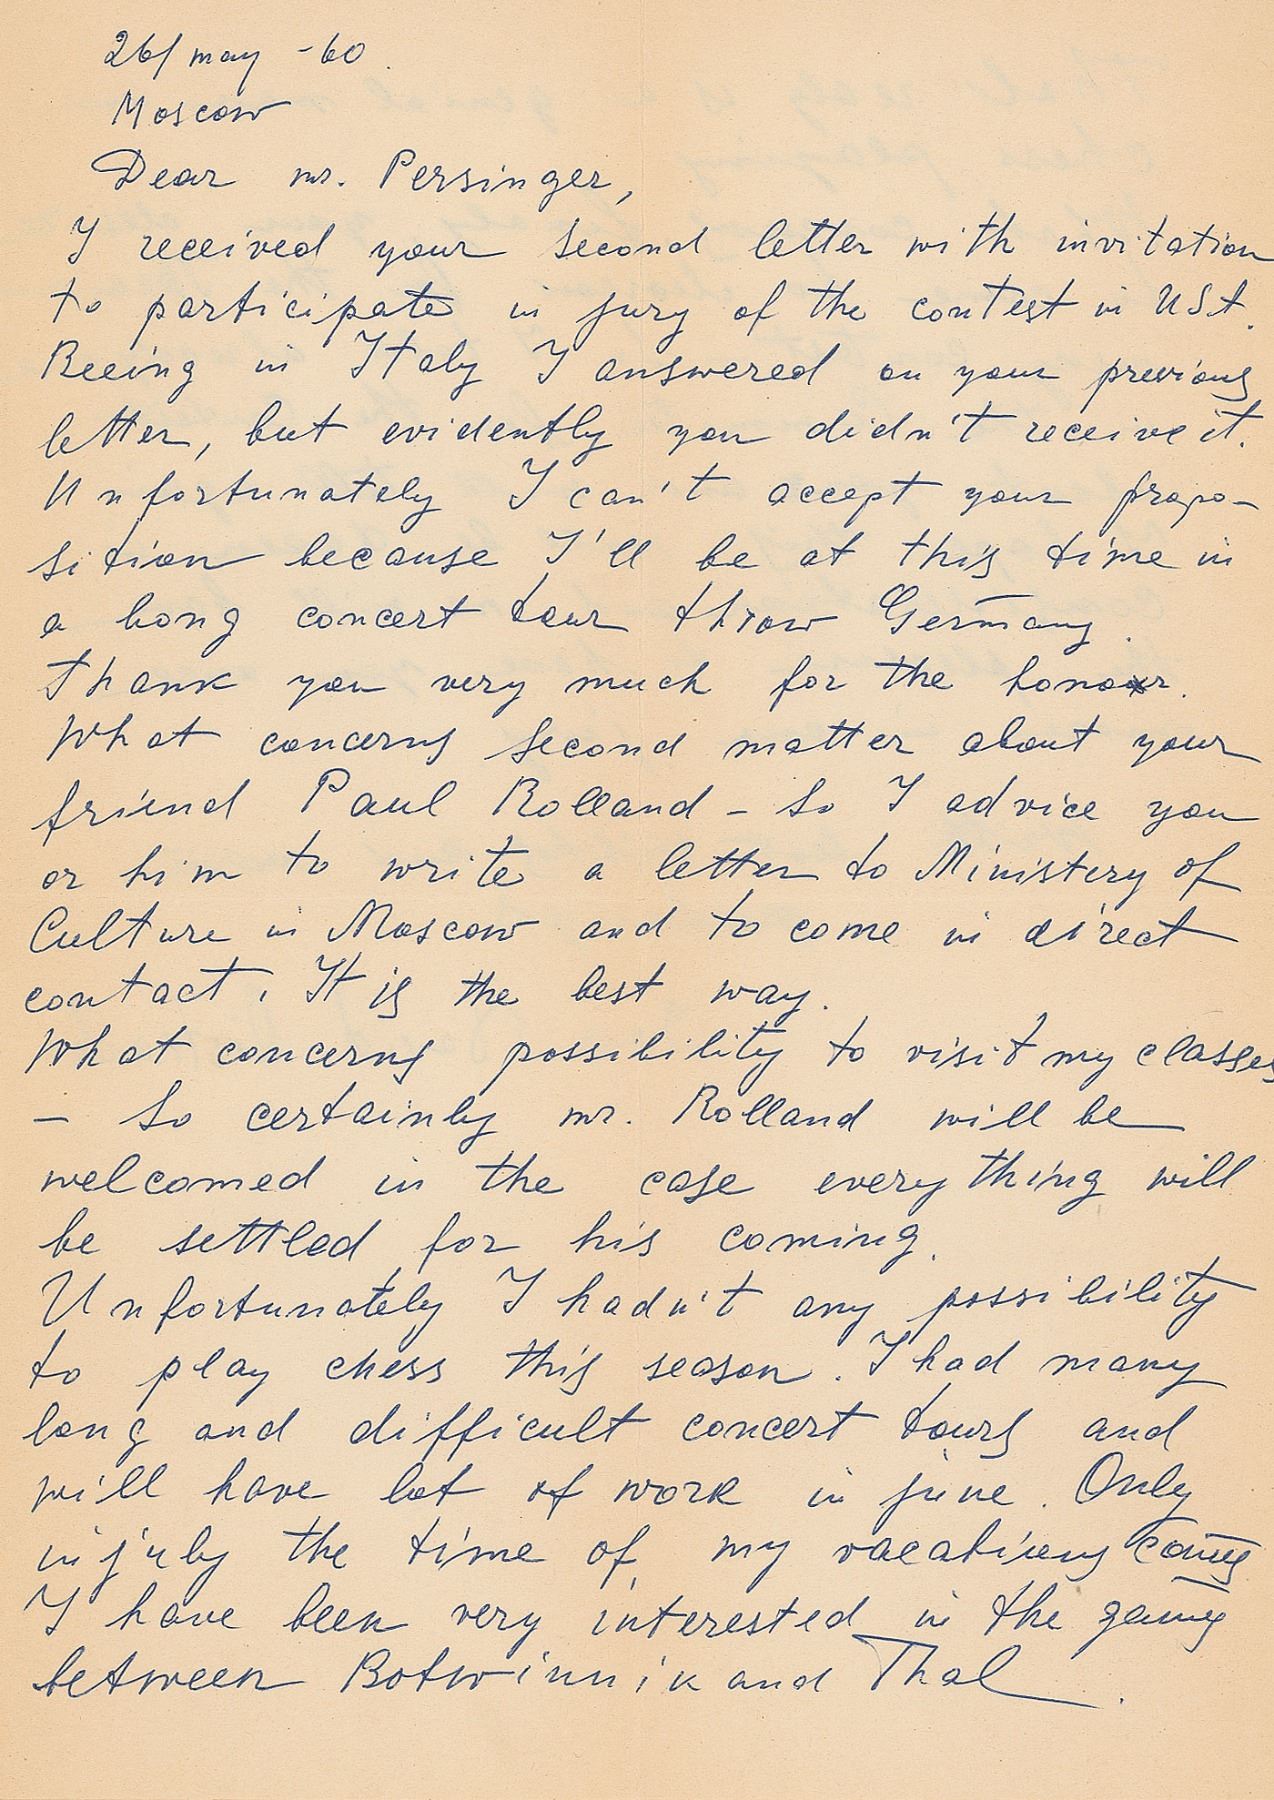 26/ may - 60.
Moscow
Dear mr. Persinger,
I received your second letter with invitation
to participate in jury of the contest in USA.
Beeing in Italy I answered on your previous
letter, but evidently you didn't receive it.
Unfortunately I can't accept your propo-
sition because I'll be at this time in
a long concert tour throw Germany.
Thank you very much for the honour.
What concerns second matter about your
friend Paul Rolland - so I advice you
or him to write a letter to Ministery of
Culture in Moscow and to come in direct
contact. It is the best way.
What concerns possibility to visit my classes
- so certainly mr. Rolland will be
welcomed in the case everything will
be settled for his coming.
Unfortunately I hadn't any possibility
to play chess this season. I had many
long and difficult concert tours and
will have lot of work in june. Only
in july the time of my vacations comes
I have been very interested in the games
between Botwinnik and Thal.